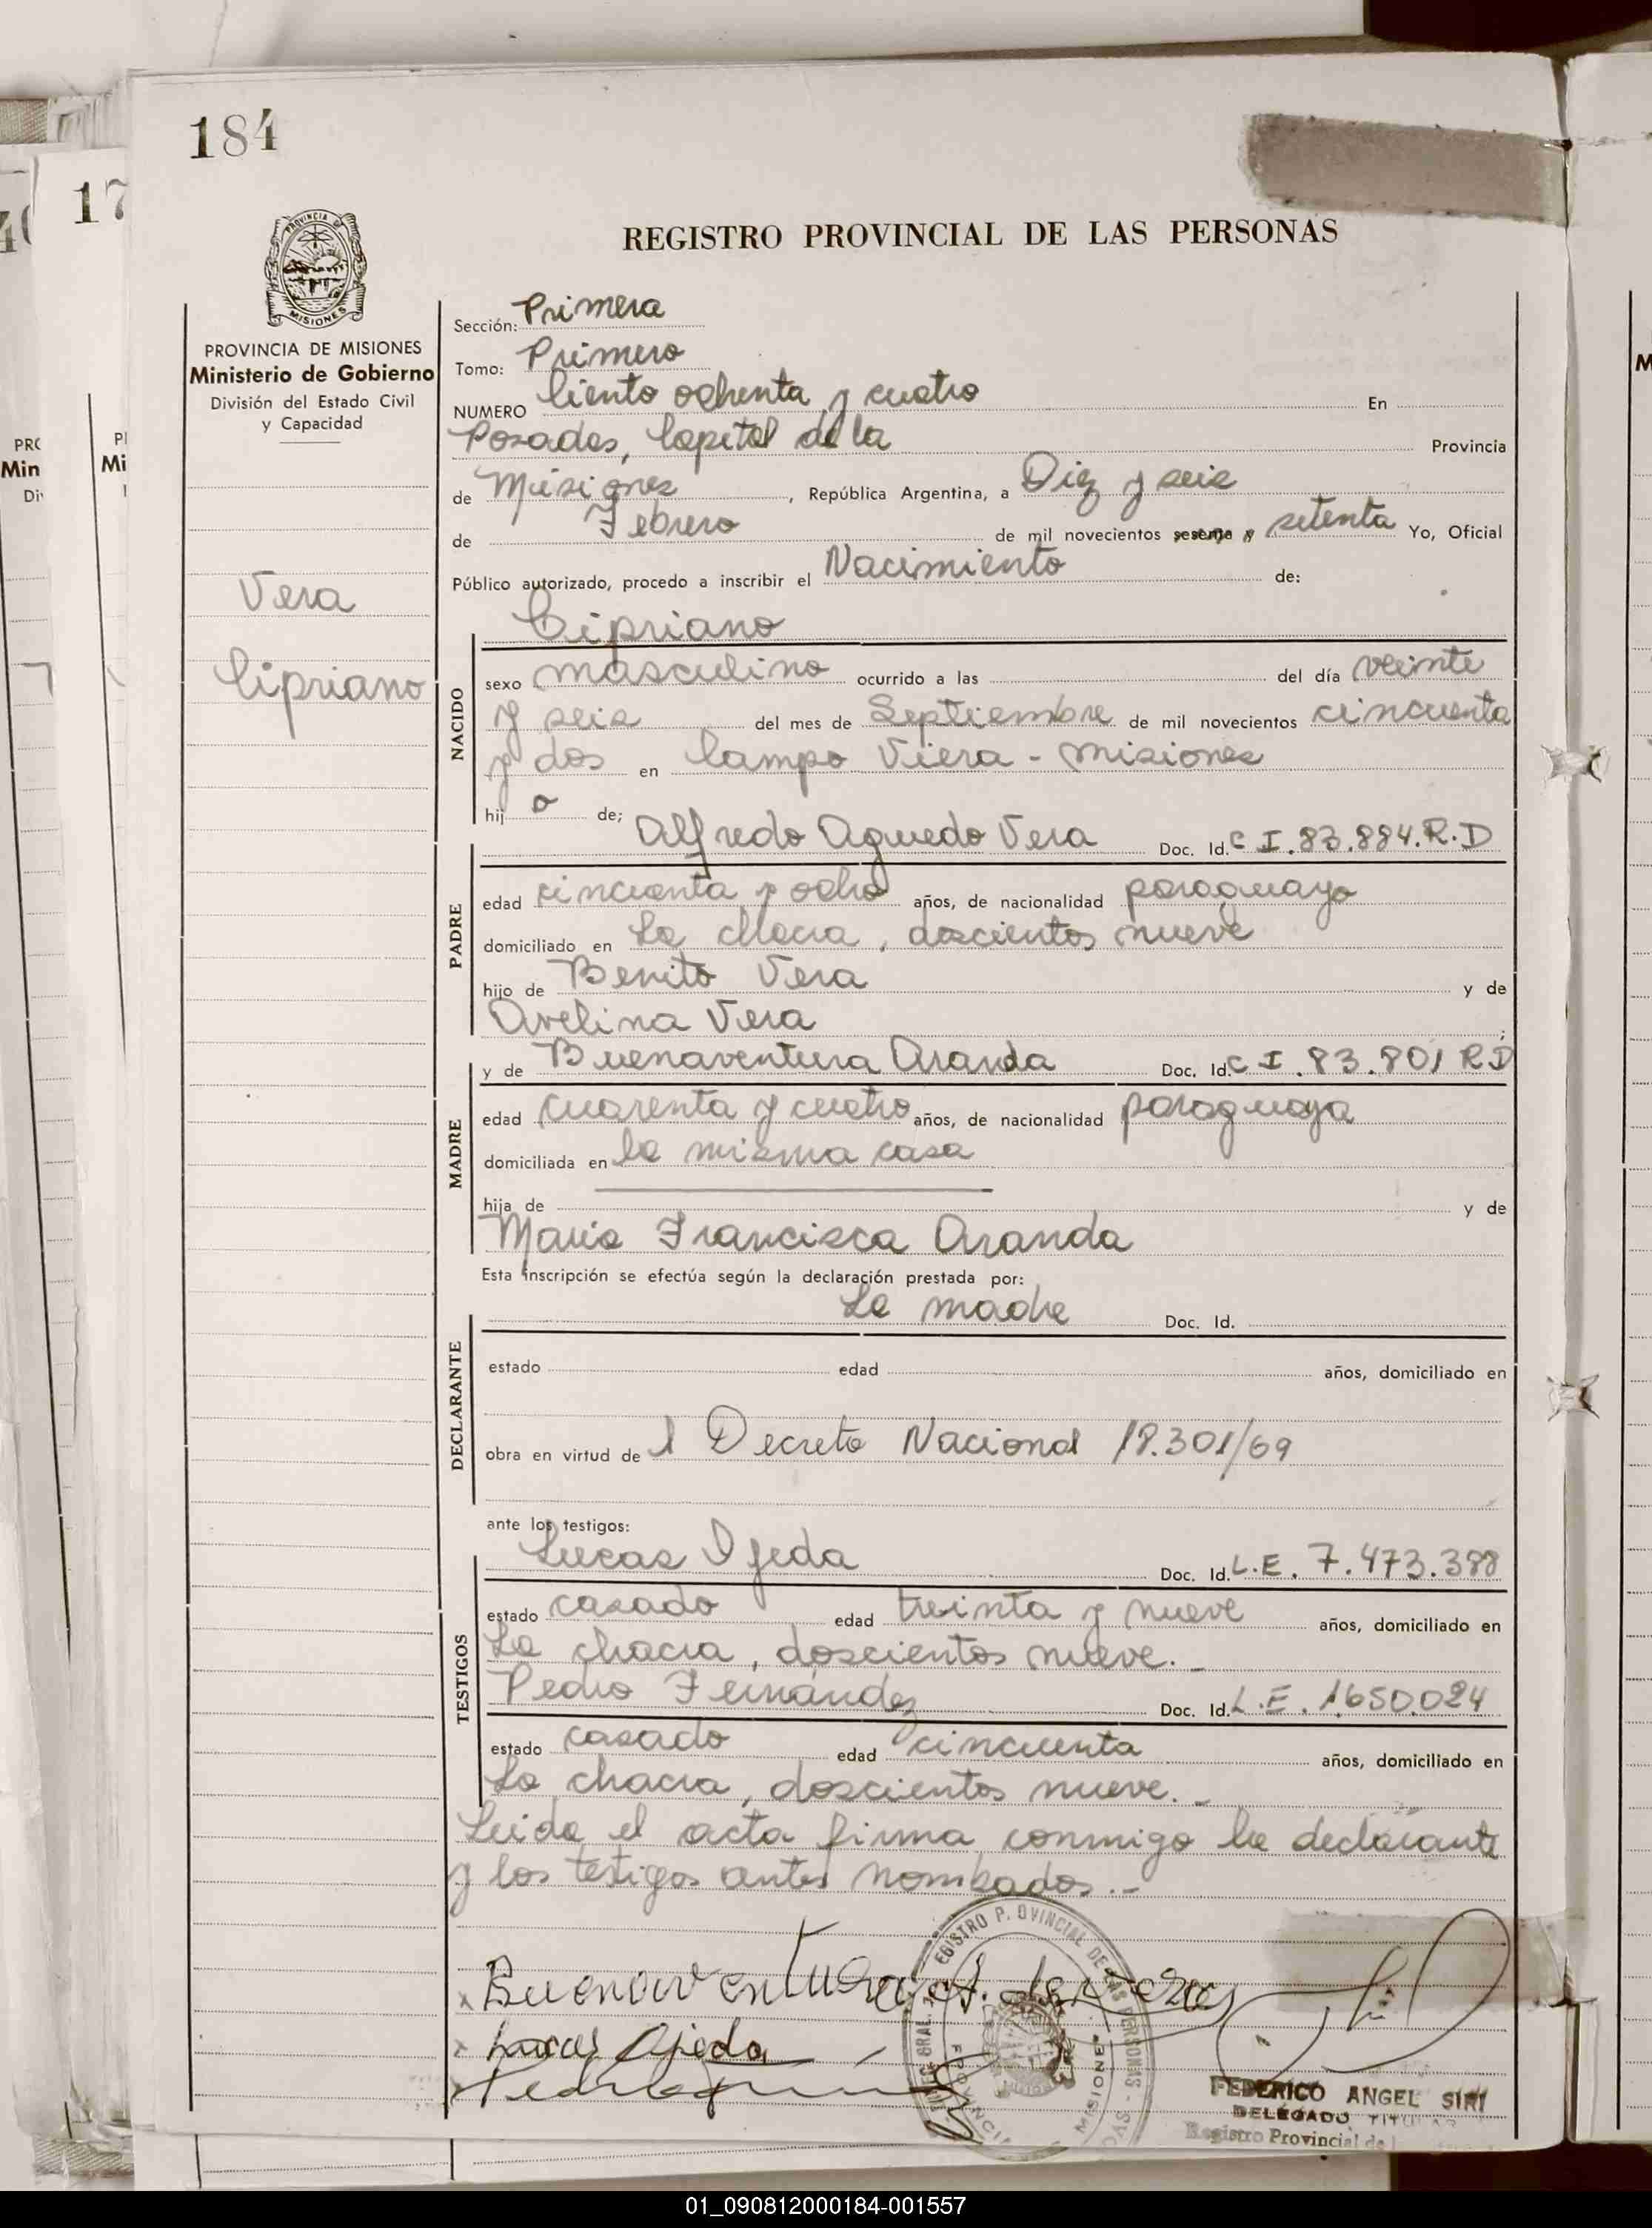 184
17
REGISTRO PROVINCIAL DE LAS PERSONAS
PROVINCIA DE MISIONES
Ministerio de Gobierno
División del Estado Civil
y Capacidad
Vera
Cipriano
Sección: Primera
Tomo: Primero
NUMERO Ciento ochenta y cuatro En
Posadas, Capital de la Provincia
de Misiones, República Argentina, a Diez y seis
de Febrero de mil novecientos sesenta y setenta Yo, Oficial
Público autorizado, procedo a inscribir el Nacimiento de:
Cipriano
NACIDO
sexo masculino ocurrido a las del día veinte
y seis del mes de Septiembre de mil novecientos cincuenta
y dos en Campo Viera - Misiones
hij o de;
PADRE
Alfredo Aguedo Vera Doc. Id. C I. 83.884. R.D
edad cincuenta y ocho años, de nacionalidad paraguayo
domiciliado en La chacra, doscientos nueve
hijo de Benito Vera y de
Avelina Vera
MADRE
y de Buenaventura Aranda Doc. Id. C I. 83.801 R D
edad cuarenta y cuatro años, de nacionalidad paraguaya
domiciliada en la misma casa
hija de y de
María Francisca Aranda
Esta inscripción se efectúa según la declaración prestada por:
DECLARANTE
La madre Doc. Id.
estado edad años, domiciliado en
obra en virtud de l Decreto Nacional 18.301/69
ante los testigos:
TESTIGOS
Lucas Ojeda Doc. Id. L.E. 7.473.388
estado casado edad treinta y nueve años, domiciliado en
La chacra, doscientos nueve. -
Pedro Fernández Doc. Id. L.E. 1.650.024
estado casado edad cincuenta años, domiciliado en
La chacra, doscientos nueve. -
Leida el acta firma conmigo la declarante
y los testigos antes nombrados. -
Buenaventura A. de Vera
Lucas Ojeda
FEDERICO ANGEL SIRI
DELEGADO TITULAR
Registro Provincial de l
01_090812000184-001557